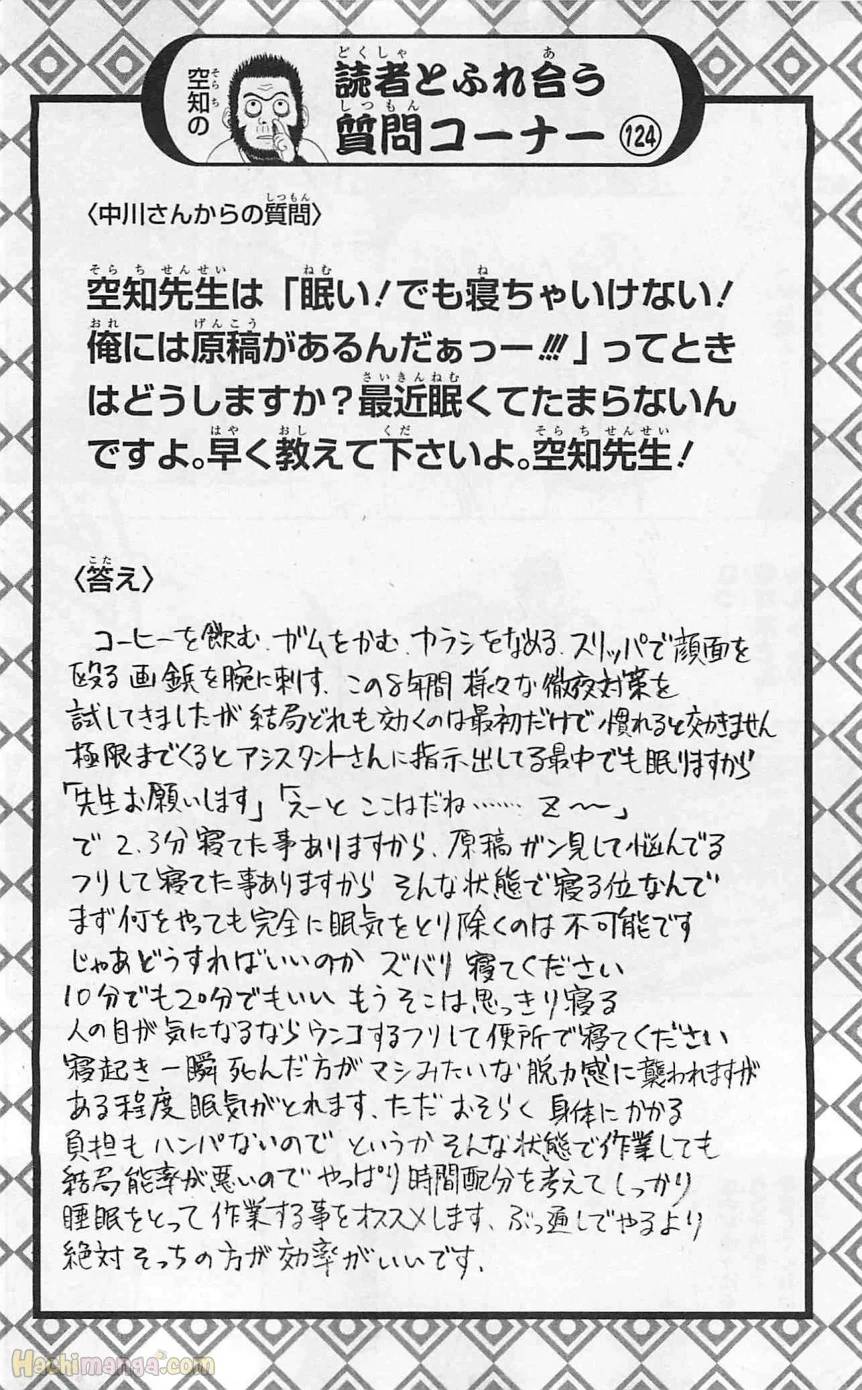 空知の
読者とふれ合う
質問コーナー 124
〈中川さんからの質問〉
空知先生は「眠い!でも寝ちゃいけない!
俺には原稿があるんだぁっー!!!」ってとき
はどうしますか?最近眠くてたまらないん
ですよ。早く教えて下さいよ。空知先生!
〈答え〉
コーヒーを飲む、ガムをかむ、カラシをなめる、スリッパで顔面を
殴る 画鋲を腕に刺す、この8年間 様々な徹夜対策を
試してきましたが 結局どれも効くのは最初だけで 慣れると効きません
極限までくると アシスタントさんに指示出してる最中でも眠りますから
「先生お願いします」「えーと ここはだね…… Z〜〜」
で 2、3分 寝てた事ありますから、原稿 ガン見して悩んでる
フリして寝てた事ありますから そんな状態で寝る位なんで
まず何をやっても完全に眠気をとり除くのは 不可能です
じゃあどうすればいいのか ズバリ 寝てください
10分でも20分でもいい もう そこは 思っきり寝る
人の目が気になるなら ウンコするフリして便所で寝てください
寝起き 一瞬 死んだ方が マシみたいな 脱力感に襲われますが
ある程度 眠気がとれます、ただ おそらく 身体にかかる
負担も ハンパないので というか そんな状態で作業しても
結局能率が悪いので やっぱり 時間配分を考えて しっかり
睡眠をとって 作業する事をオススメします、ぶっ通しでやるより
絶対 そっちの方が 効率がいいです、
Hachimanga.com